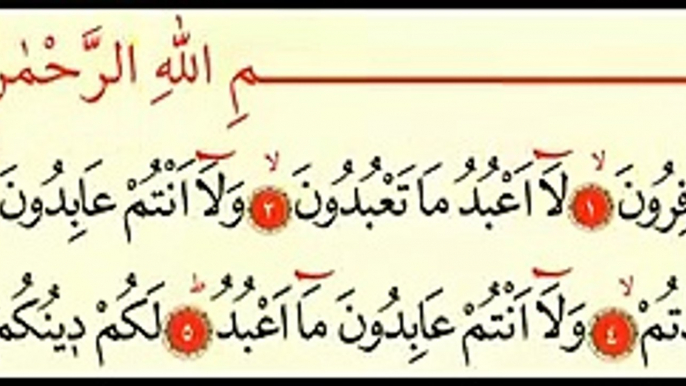 مِ اللّٰهِ الرَّحْمٰنِ
فِرُونَۙ ١ لَٓا اَعْبُدُ مَا تَعْبُدُونَۙ ٢ وَلَٓا اَنْتُمْ عَابِدُونَ
دْتُمْۙ ٤ وَلَٓا اَنْتُمْ عَابِدُونَ مَٓا اَعْبُدُۜ ٥ لَكُمْ د۪ينُكُمْ